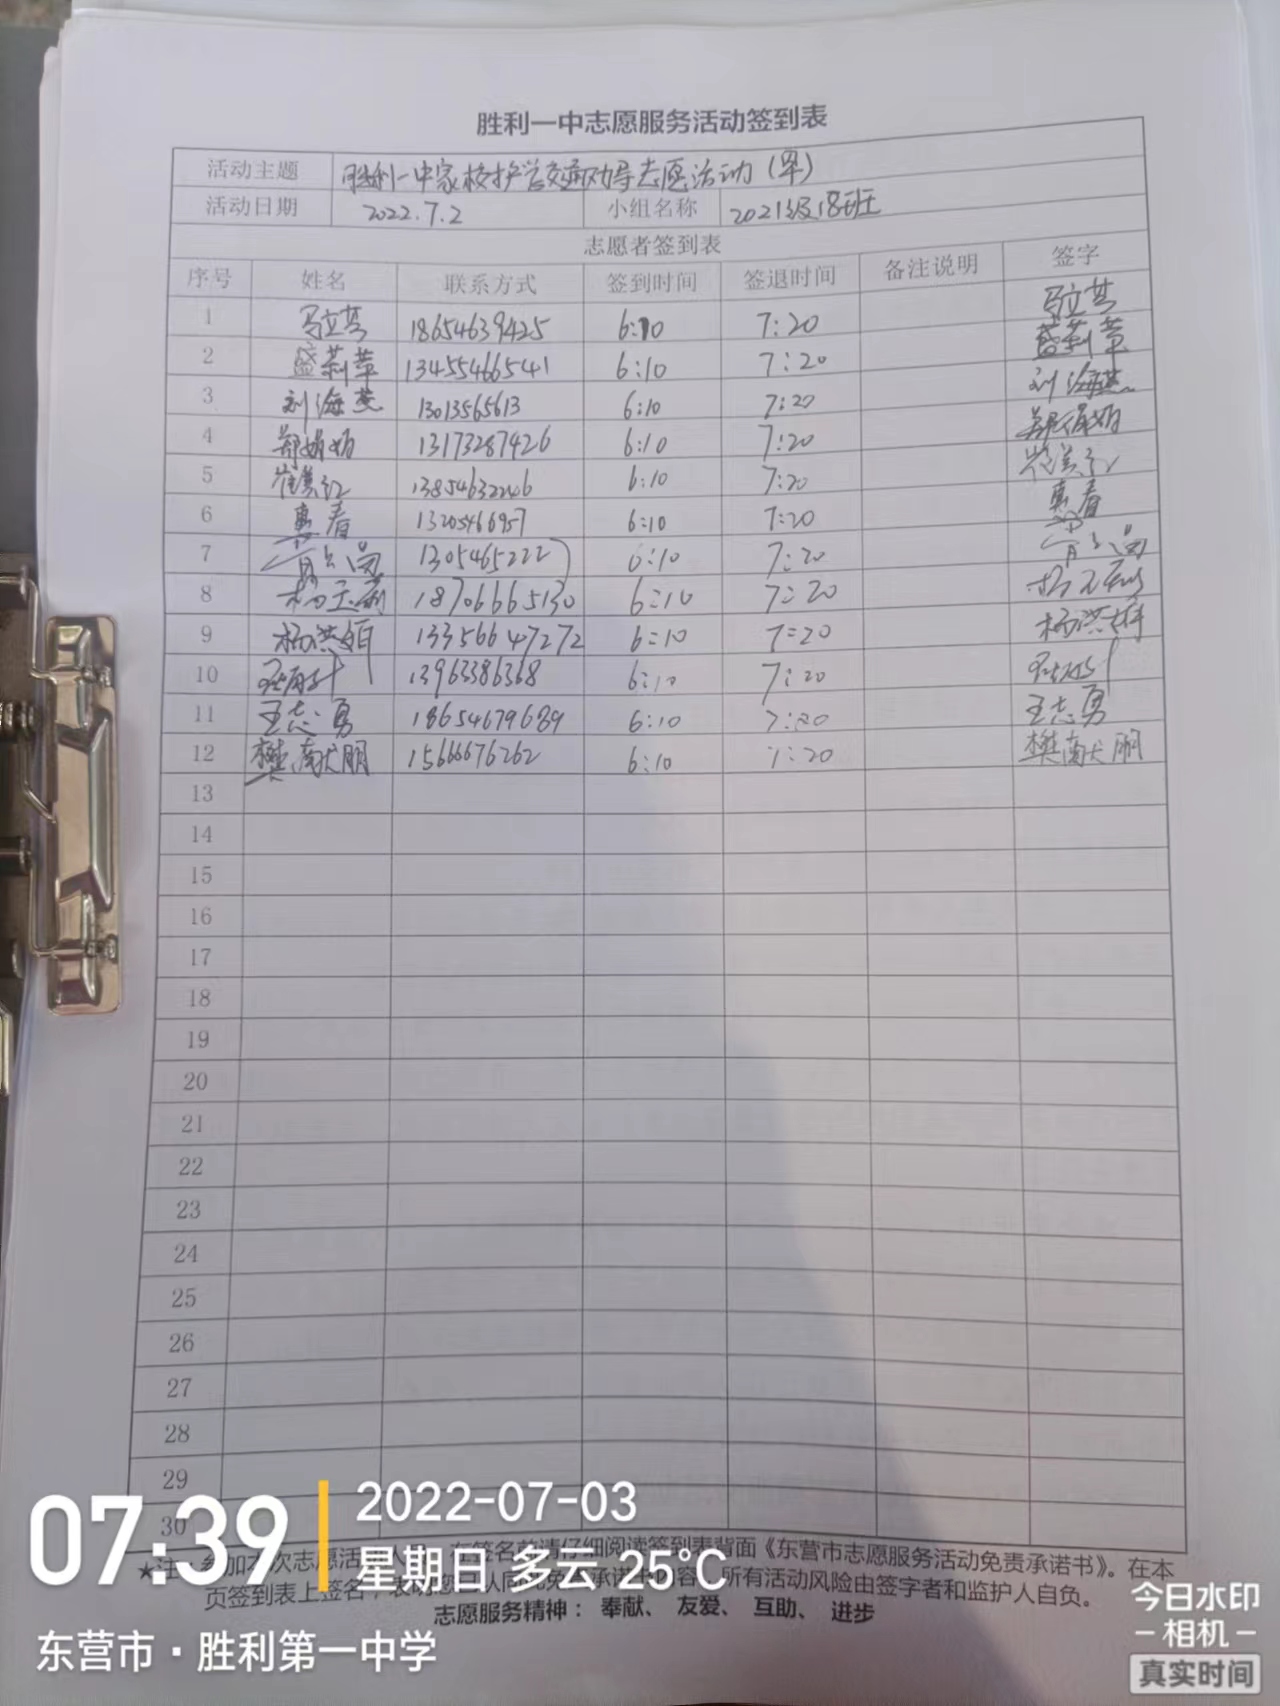 胜利一中志愿服务活动签到表
活动主题 胜利一中家校护学交通劝导志愿活动（早）
活动日期 2022.7.2 小组名称 2021级18班
志愿者签到表
序号 姓名 联系方式 签到时间 签退时间 备注说明 签字
1 18654639425 6:10 7:20
2 盛莉苹 13455466541 6:10 7:20 盛莉苹
3 刘海燕 13013565613 6:10 7:20 刘海燕
4 郑娟娟 13173287426 6:10 7:20 郑娟娟
5 崔美红 13854632246 6:10 7:20 崔美红
6 6:10 7:20
7 6:10 7:20
8 18706665130 6:10 7:20
9 13356647272 6:10 7:20
10 13963386368 6:10 7:20
11 王志勇 18654679689 6:10 7:20 王志勇
12 樊献朋 15666676262 6:10 7:20 樊献朋
13
14
15
16
17
18
19
20
21
22
23
24
25
26
27
28
29
30
★注：参加本次志愿活动 签名前请仔细阅读签到表背面《东营市志愿服务活动免责承诺书》。在本
页签到表上签名， 内容，所有活动风险由签字者和监护人自负。
志愿服务精神：奉献、友爱、互助、进步
07:39
2022-07-03
星期日 多云 25°C
东营市·胜利第一中学
今日水印
-相机-
真实时间